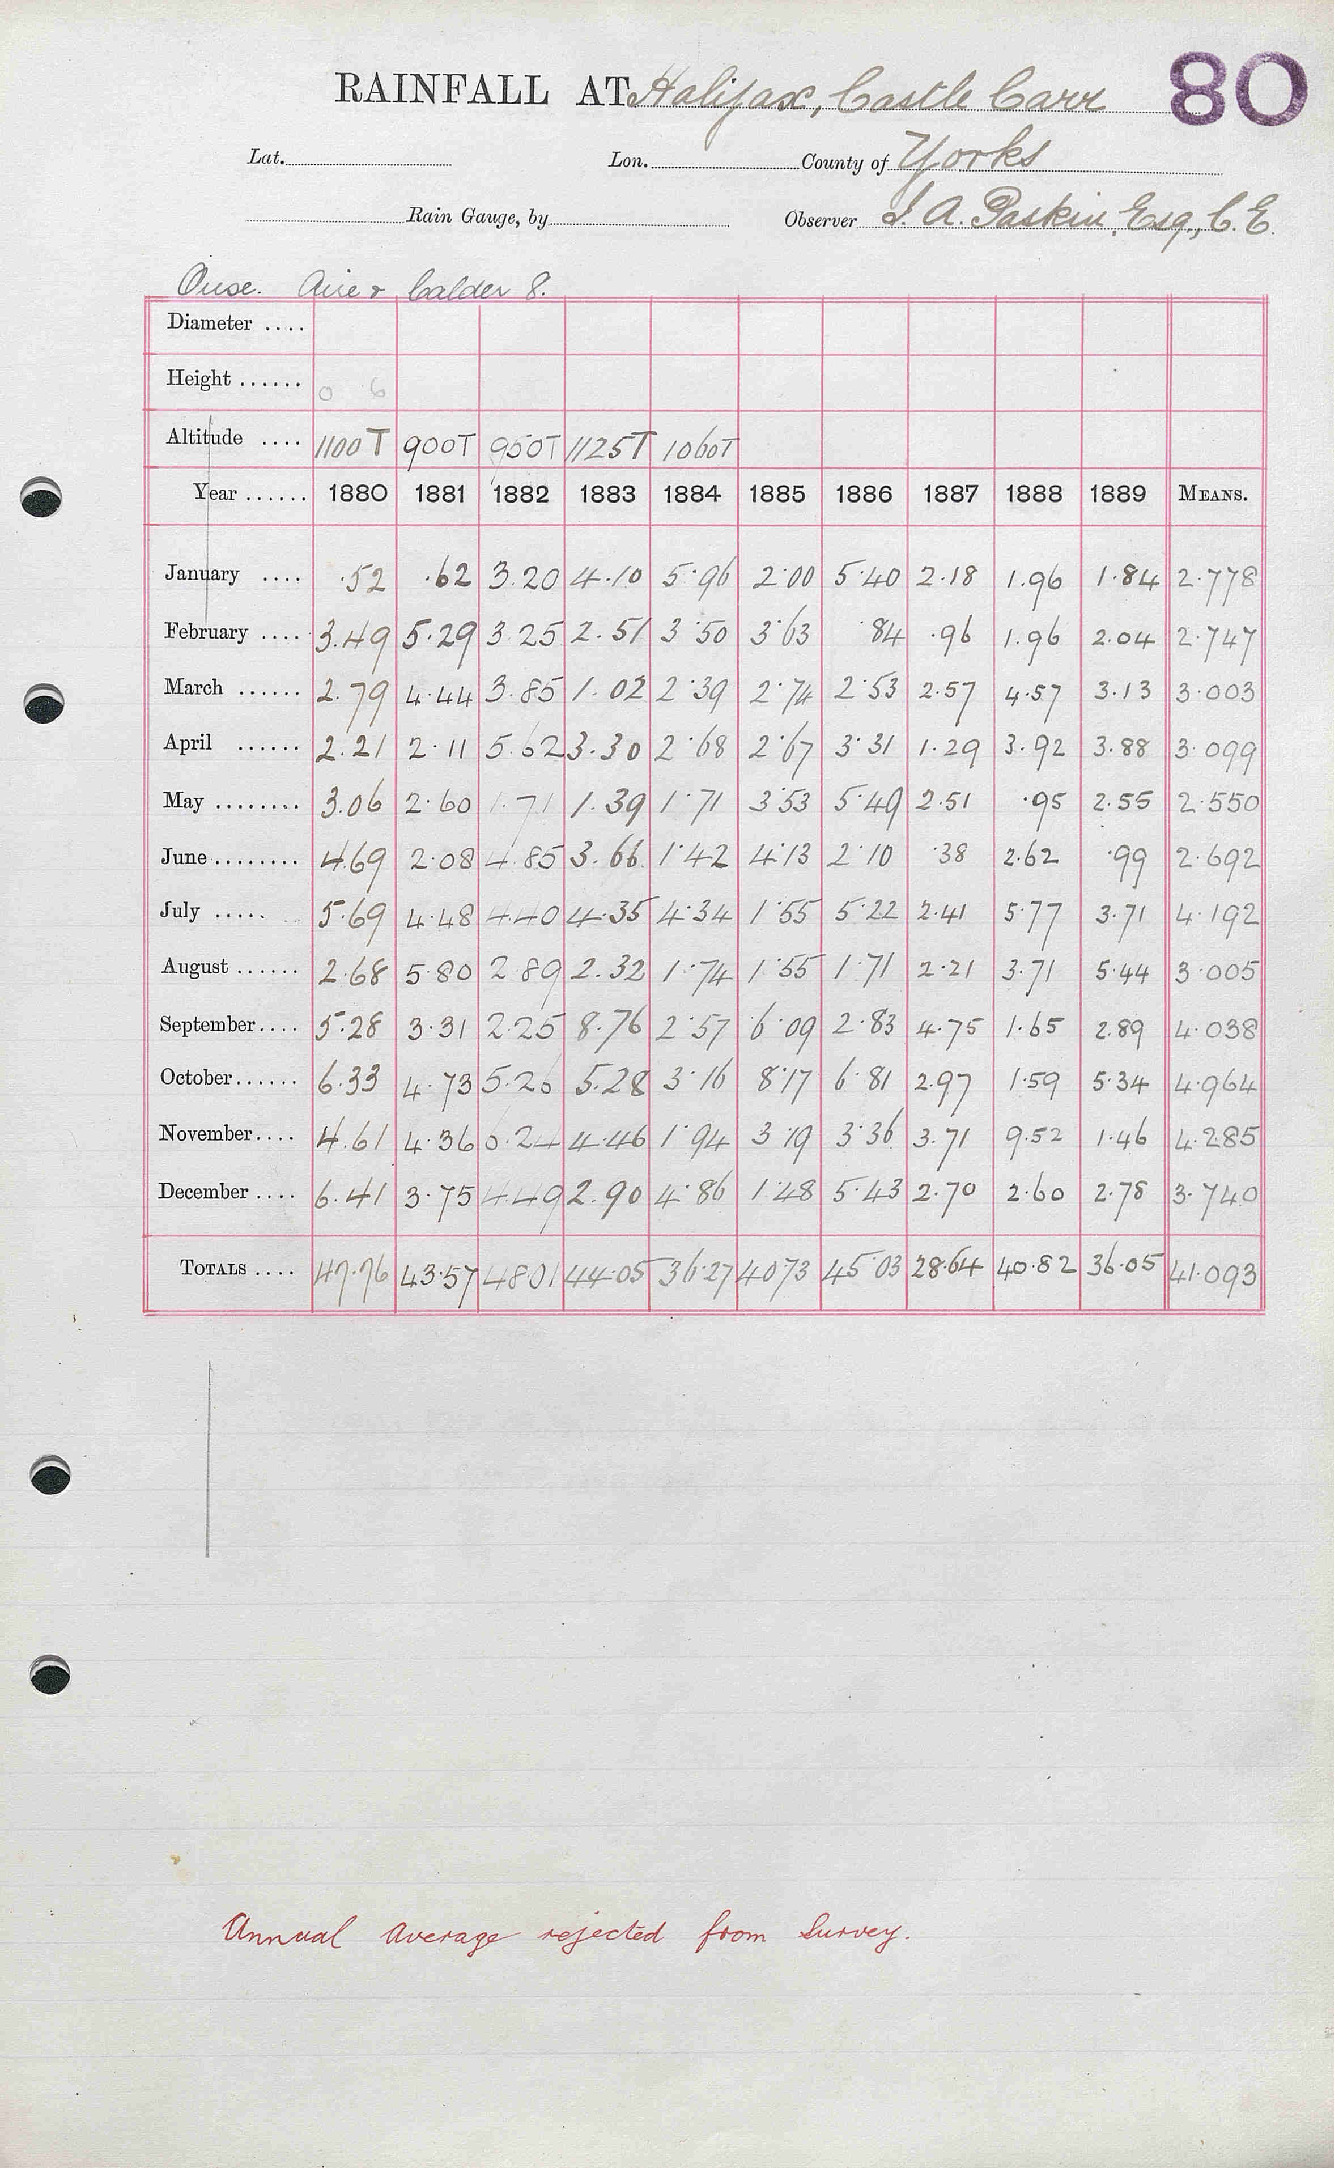 80
RAINFALL AT Halifax, Castle Carr
Lat. Lon. County of Yorks
Rain Gauge, by Observer J. A. Paskin, Esq., C.E.
Ouse. Aire & Calder 8.
Diameter ....
Height ...... 0 6
Altitude .... 1100T 900T 950T 1125T 1060T
Year ...... 1880 1881 1882 1883 1884 1885 1886 1887 1888 1889 MEANS.
January .... .52 .62 3.20 4.10 5.96 2.00 5.40 2.18 1.96 1.84 2.778
February .... 3.49 5.29 3.25 2.51 3.50 3.63 84 .96 1.96 2.04 2.747
March ...... 2.79 4.44 3.85 1.02 2.39 2.74 2.53 2.57 4.57 3.13 3.003
April ...... 2.21 2.11 5.62 3.30 2.68 2.67 3.31 1.29 3.92 3.88 3.099
May ........ 3.06 2.60 1.71 1.39 1.71 3.53 5.49 2.51 .95 2.55 2.550
June ........ 4.69 2.08 4.85 3.66 1.42 4.13 2.10 .38 2.62 .99 2.692
July ..... 5.69 4.48 4.40 4.35 4.34 1.55 5.22 2.41 5.77 3.71 4.192
August ...... 2.68 5.80 2.89 2.32 1.74 1.55 1.71 2.21 3.71 5.44 3.005
September .... 5.28 3.31 2.25 8.76 2.57 6.09 2.83 4.75 1.65 2.89 4.038
October ...... 6.33 4.73 5.26 5.28 3.16 8.17 6.81 2.97 1.59 5.34 4.964
November .... 4.61 4.36 6.24 4.46 1.94 3.19 3.36 3.71 9.52 1.46 4.285
December .... 6.41 3.75 4.49 2.90 4.86 1.48 5.43 2.70 2.60 2.78 3.740
TOTALS .... 47.76 43.57 48.01 44.05 36.27 40.73 45.03 28.64 40.82 36.05 41.093
Annual average rejected from Survey.